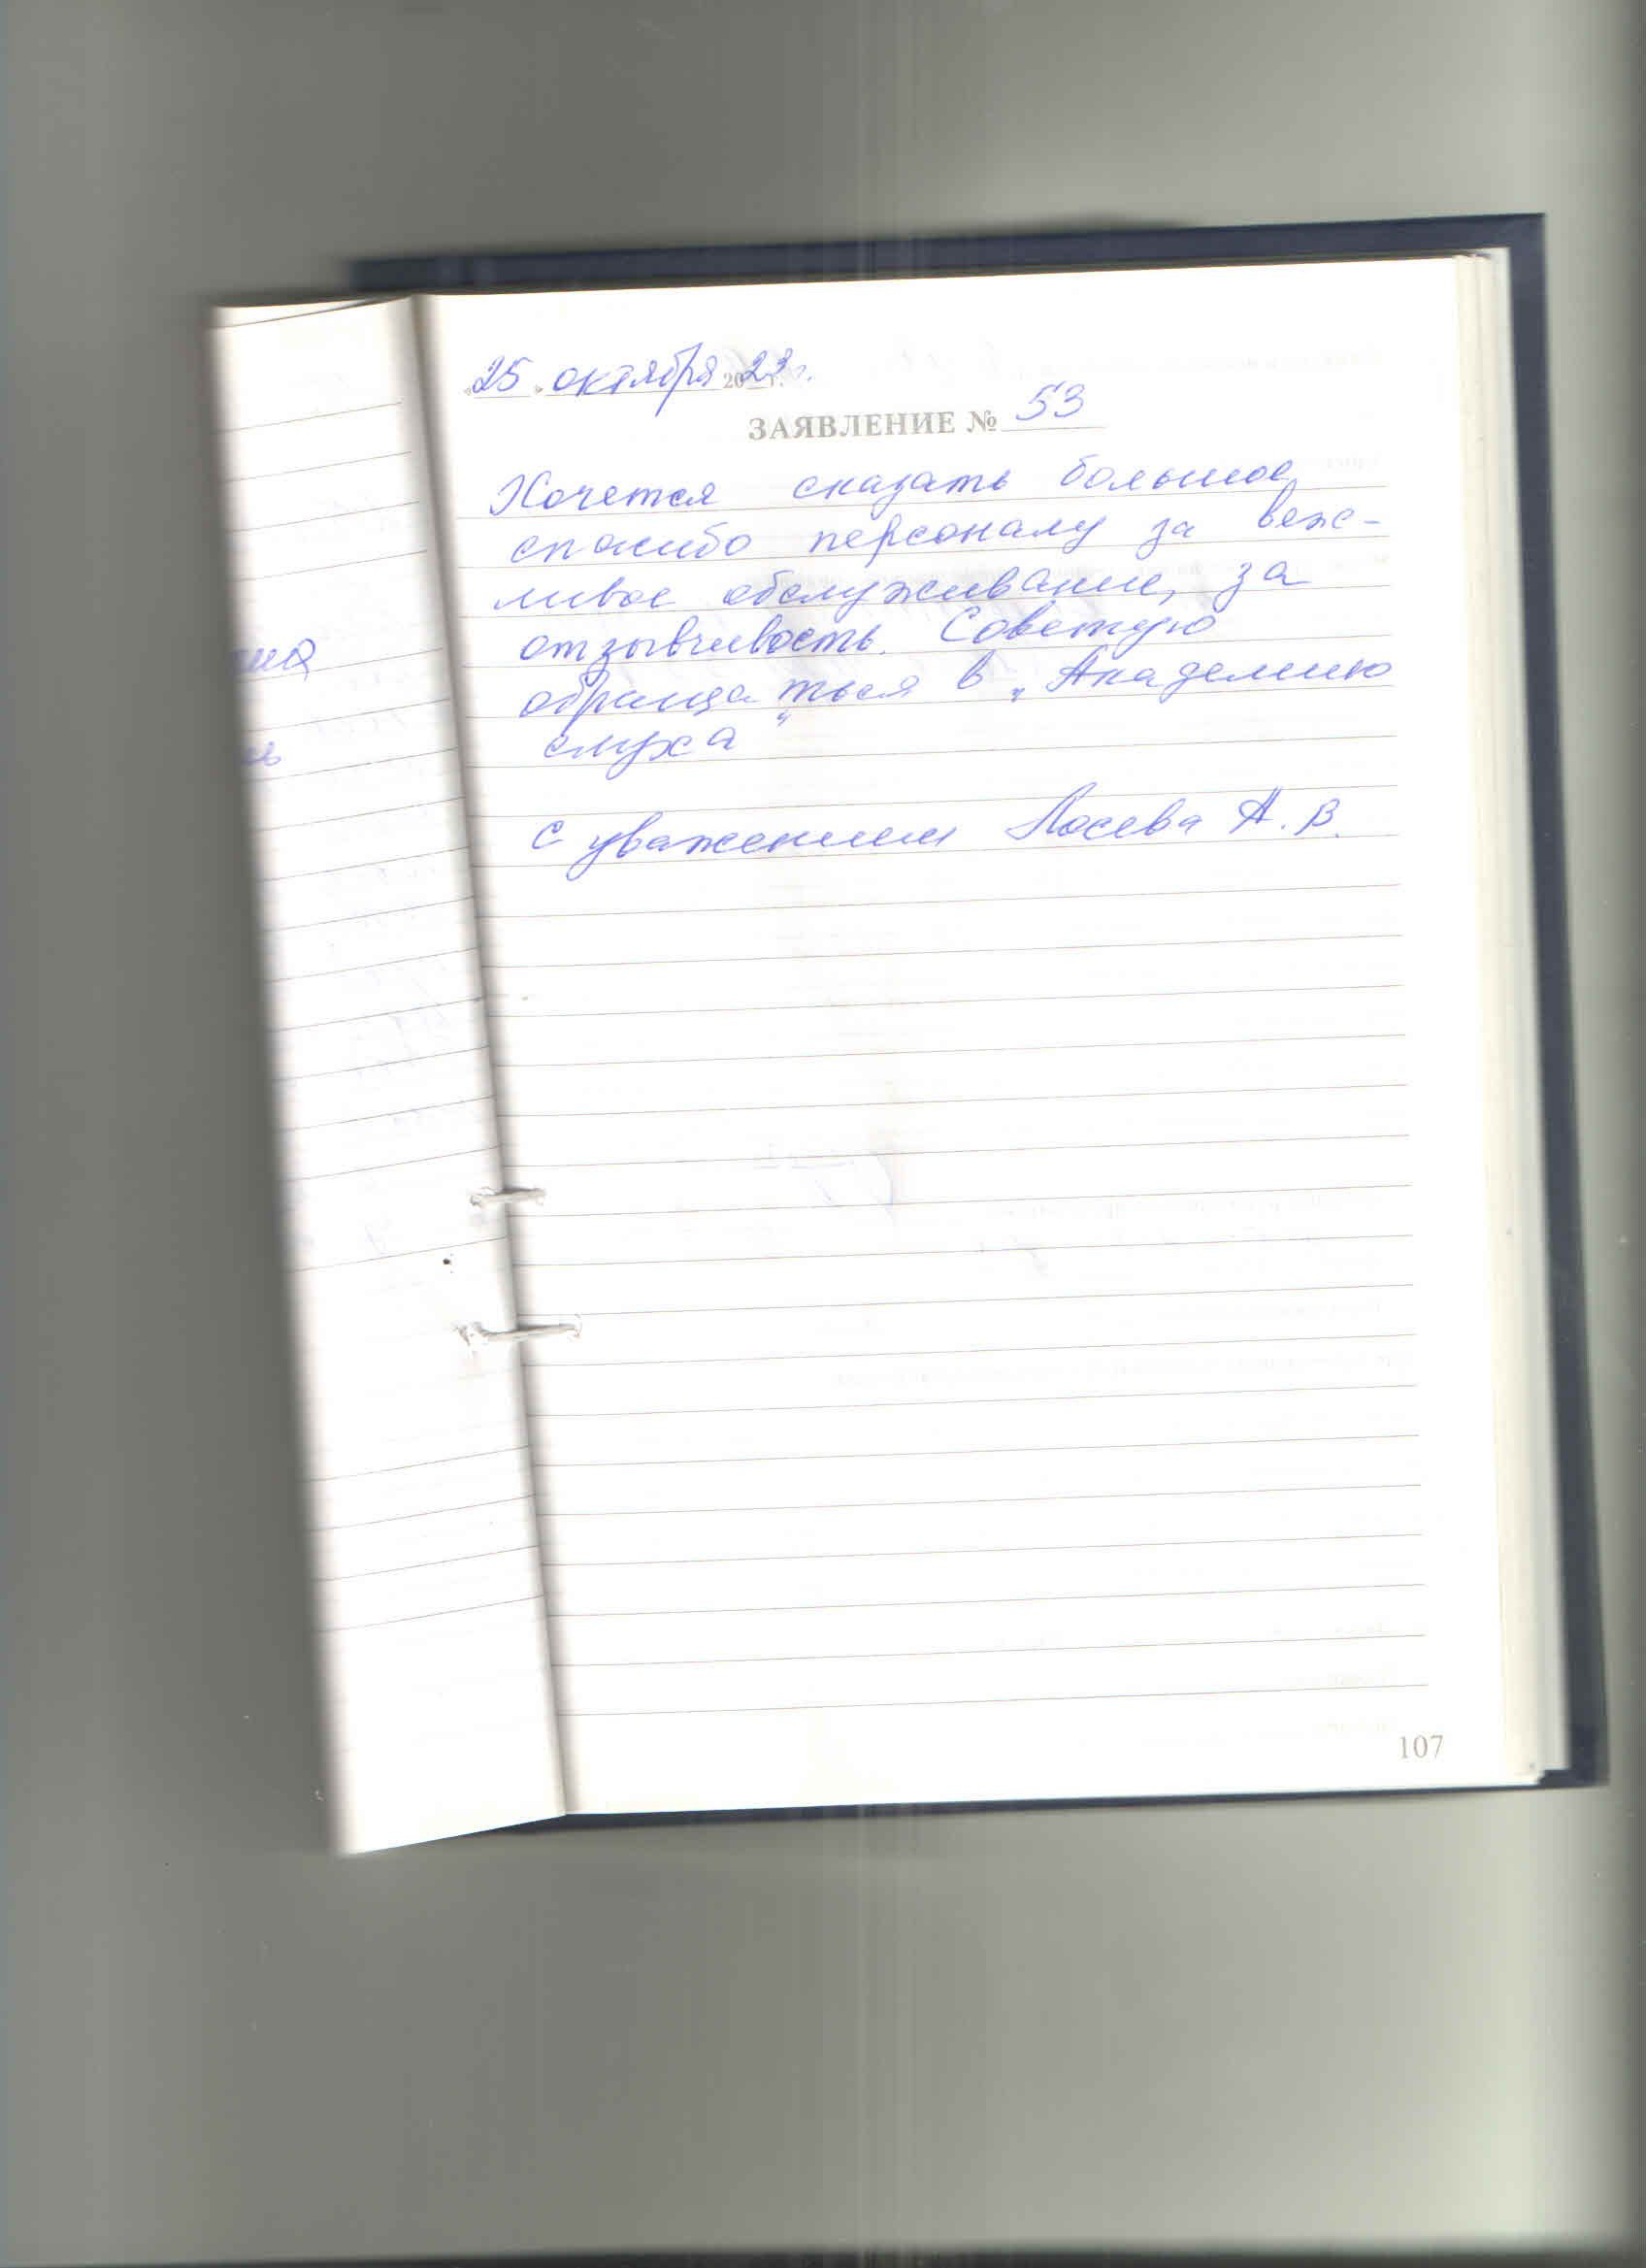 «25» октября 2023г.
ЗАЯВЛЕНИЕ № 53
Хочется сказать большое
спасибо персоналу за веж-
ливое обслуживание, за
отзывчивость. Советую
обращаться в „Академию
слуха“
С уважением Лосева А. В.
107